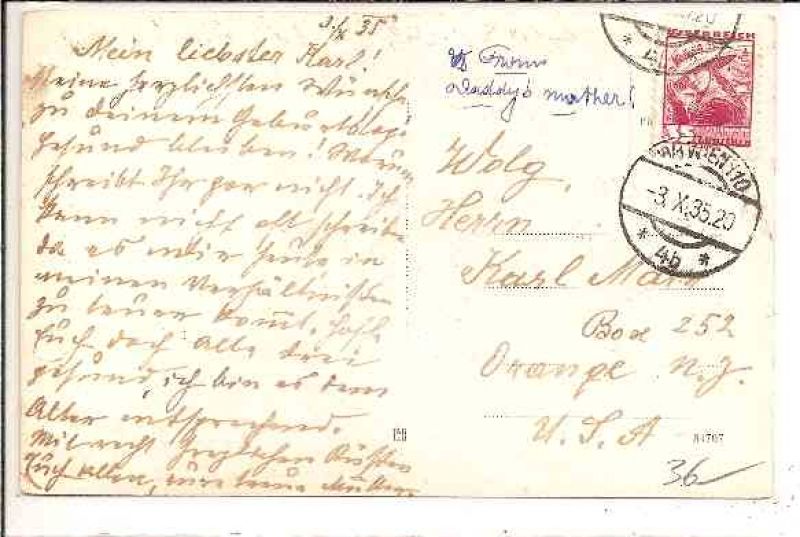 3/X 35
Mein liebster Karl!
Meine herzlichsten Wünsche
zu deinem Geburtstage
Gesund bleiben! Warum
schreibt Ihr gar nicht. Ich
kann nicht oft schreiben
da es mir heute in
meinen Verhältnissen
zu teuer kommt. Hoffe
Euch doch alle drei
gesund, ich bin es dem
Alter entsprechend.
Mit recht herzlichen Küssen
Euch allen, eure treue Mutter
From
Daddy's mother!
Herrn
Karl
Box 252
Orange N.J.
U.S.A
ÖSTERREICH
WIEN 110
-3.X.35.20
* 4b *
20
36